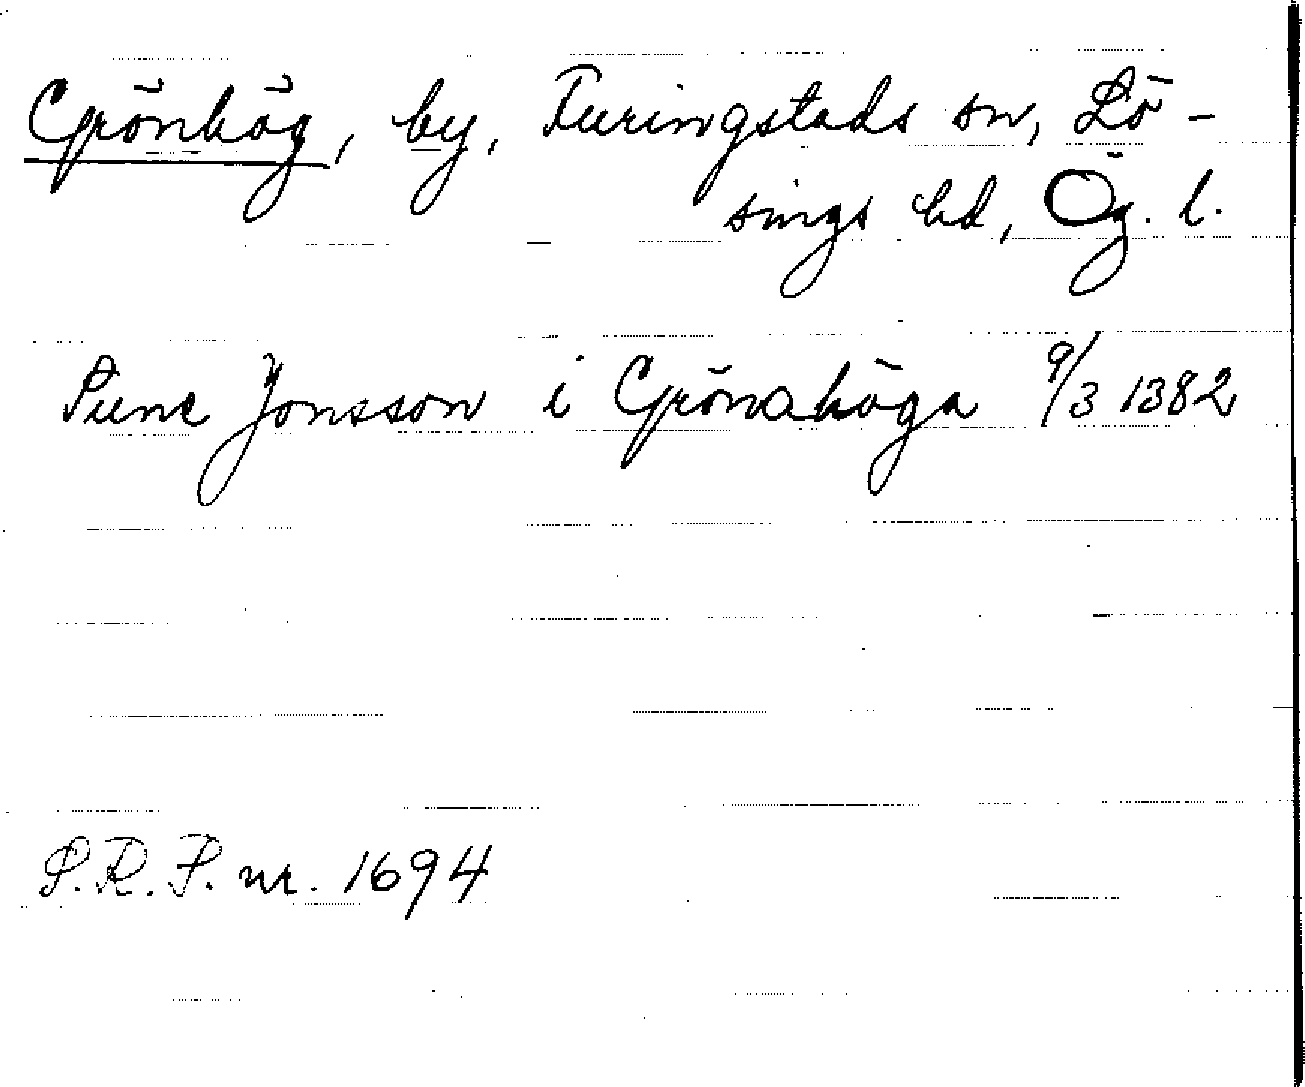 Grönhög, by, Furingstads sn, Lö-
sings hd, Ög. l.
Sune Jonsson i Grönahöga 9/3 1382
S.R.P. nr. 1694